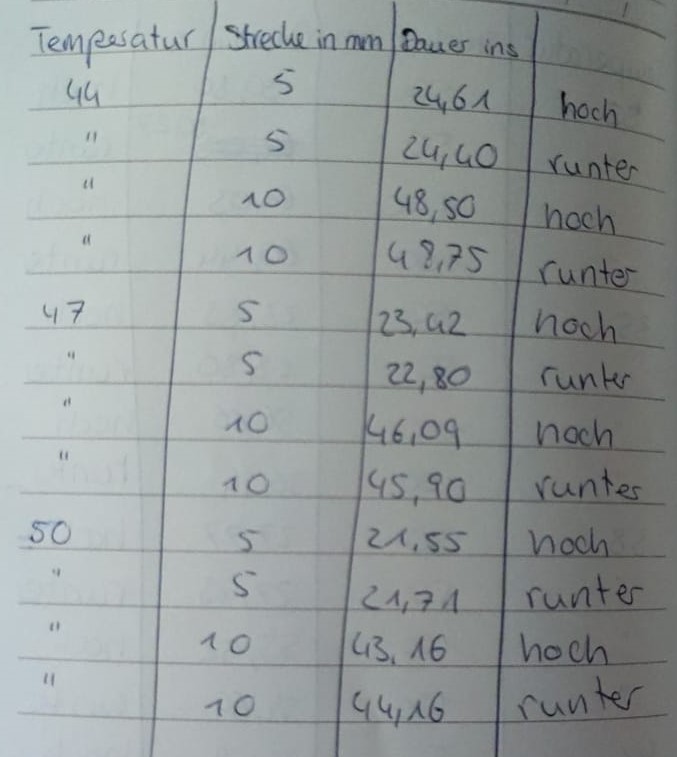 Temperatur Strecke in mm Dauer in s
44 5 24,61 hoch
" 5 24,40 runter
" 10 48,50 hoch
" 10 48,75 runter
47 5 23,42 hoch
" 5 22,80 runter
" 10 46,09 hoch
" 10 45,90 runter
50 5 21,55 hoch
" 5 21,71 runter
" 10 43,16 hoch
" 10 44,16 runter